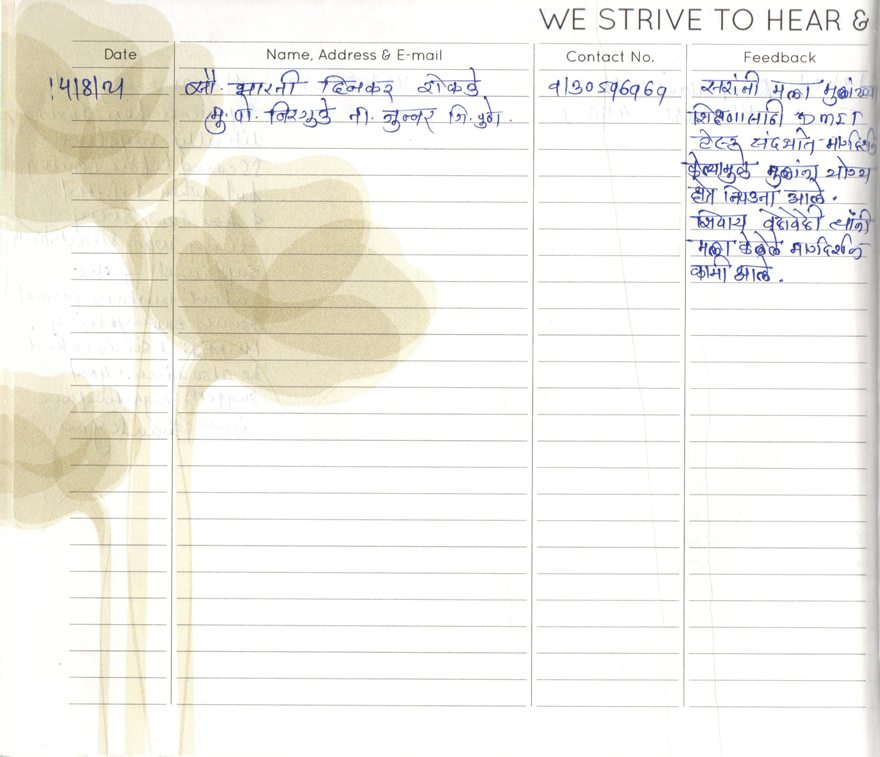 WE STRIVE TO HEAR &
Date Name, Address & E-mail Contact No. Feedback
सौ. भारती दिनकर शेकडे
मु. पो. निरगुडे ता. जुन्नर जि. पुणे.
सरांनी मला मुलांच्या
शिक्षणासाठी
संदर्भात मार्गदर्शन
केल्यामुळे मुलांना योग्य
क्षेत्र निवडता आले.
शिवाय वेळोवेळी त्यांनी
मला केलेले मार्गदर्शन
कामी आले.